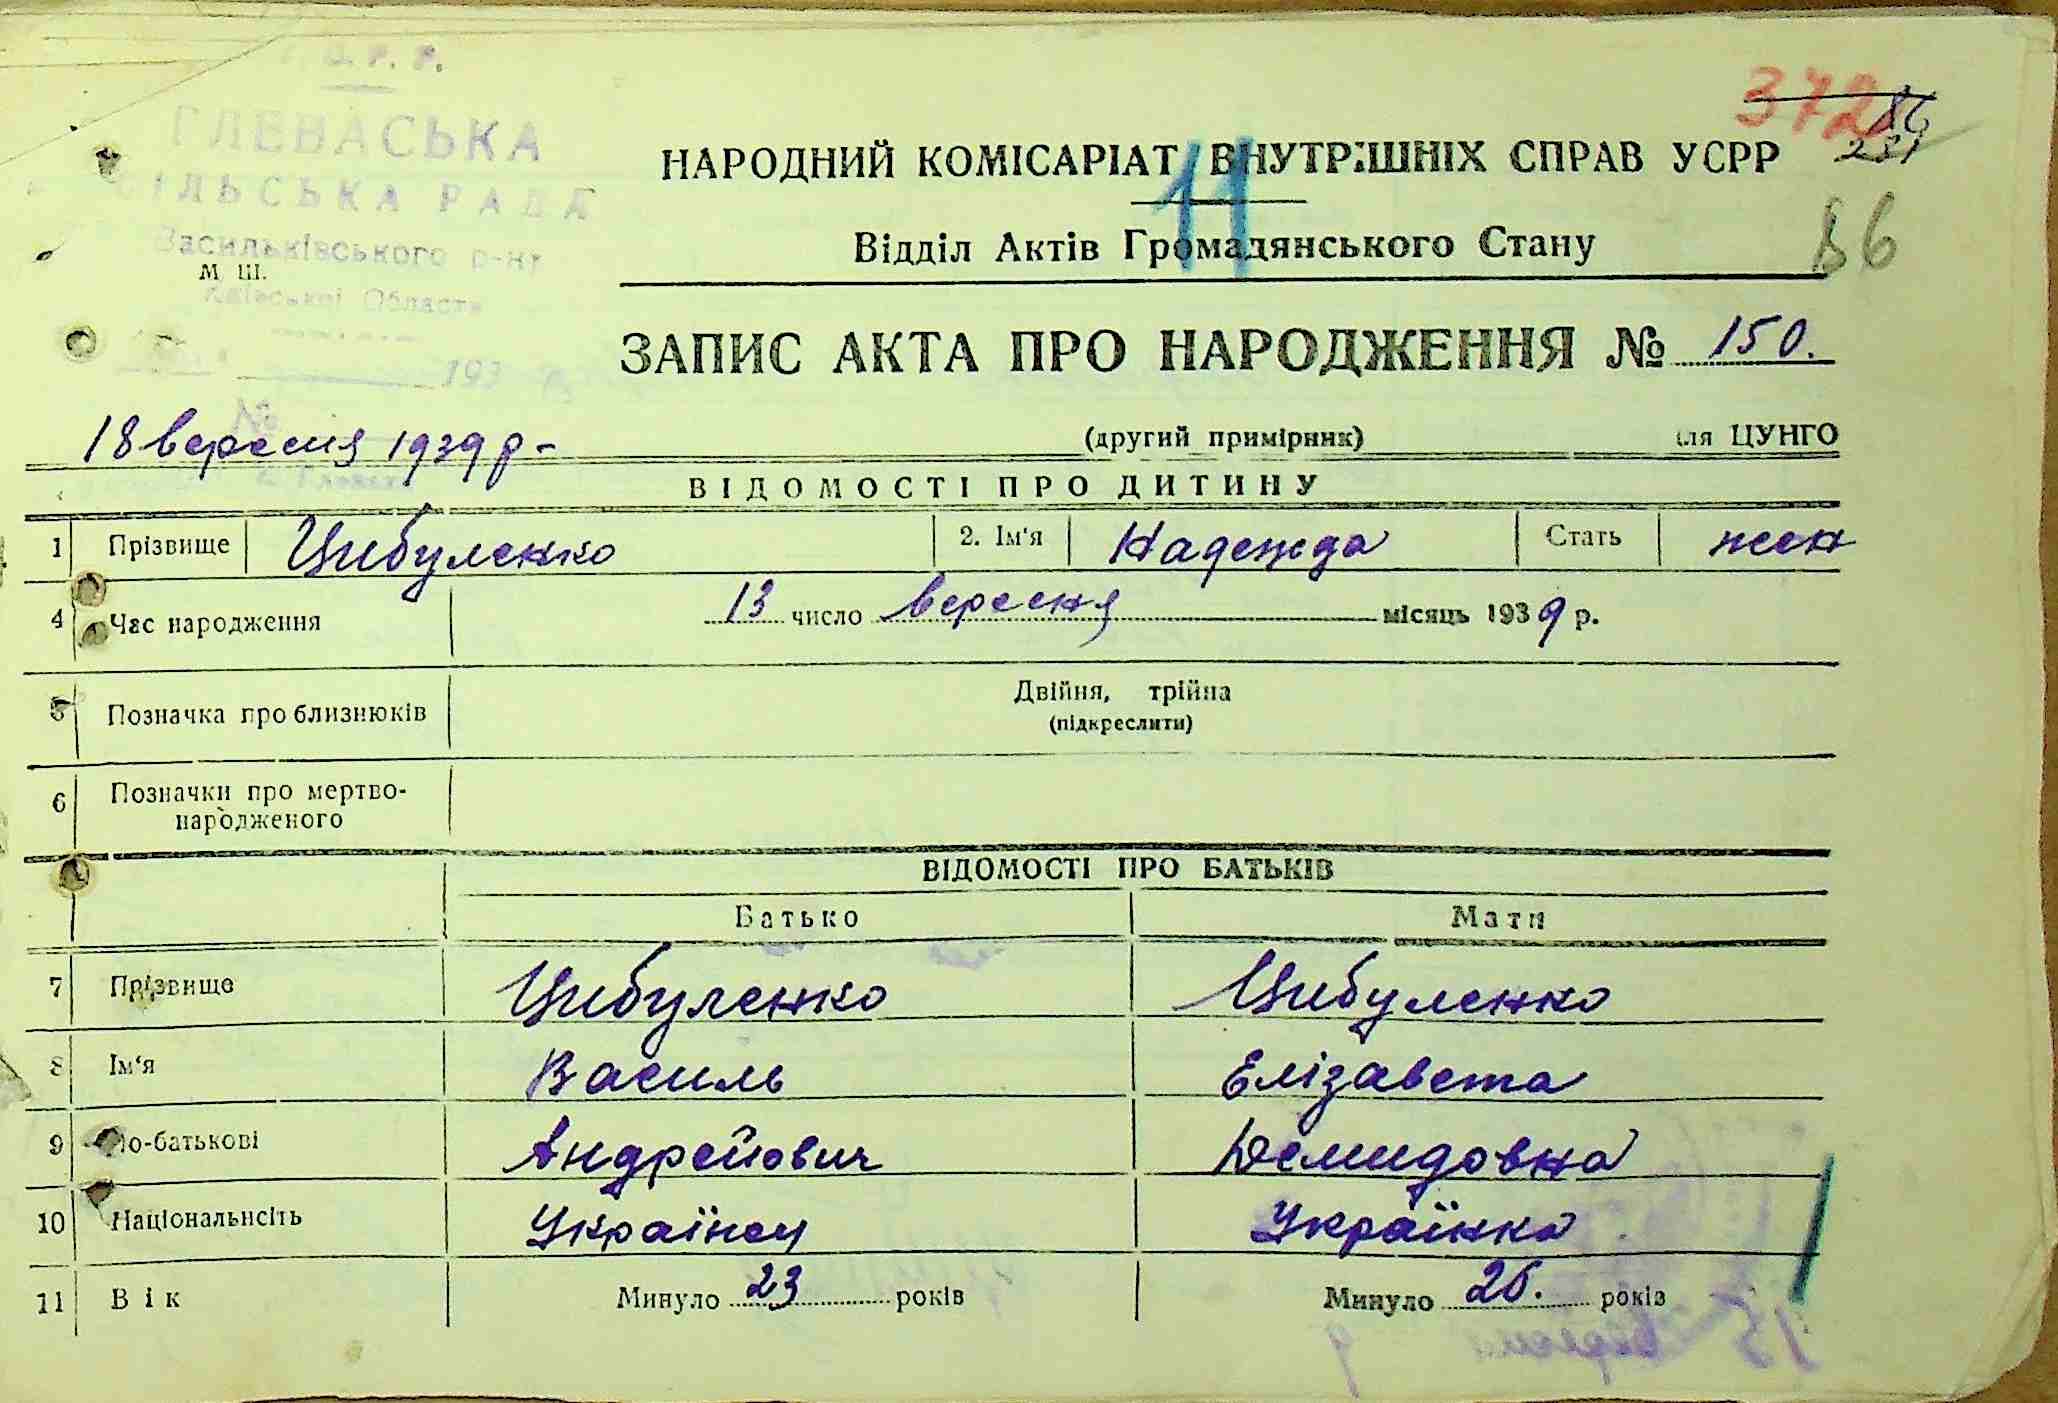 ГЛЕВАСЬКА
СІЛЬСЬКА РАДА
Васильківського р-ну
М Ш.
Київської Области
193
№
372
86
231
86
11
НАРОДНИЙ КОМІСАРІАТ ВНУТРІШНІХ СПРАВ УСРР
Відділ Актів Громадянського Стану
ЗАПИС АКТА ПРО НАРОДЖЕННЯ № 150.
18 вересня 1939 р - (другий примірник) для ЦУНГО
ВІДОМОСТІ ПРО ДИТИНУ
1 Прізвище Цибуленко 2. Ім'я Надежда Стать жен
4 Час народження 13 число вересня місяць 1939 р.
5 Позначка про близнюків Двійня, трійна
(підкреслити)
6 Позначки про мертво-
народженого
ВІДОМОСТІ ПРО БАТЬКІВ
Батько Мати
7 Прізвище Цибуленко Цибуленко
8 Ім'я Василь Елізавета
9 По-батькові Андрейович Демидовна
10 Національність Українец Українка
11 Вік Минуло 23 років Минуло 26. років